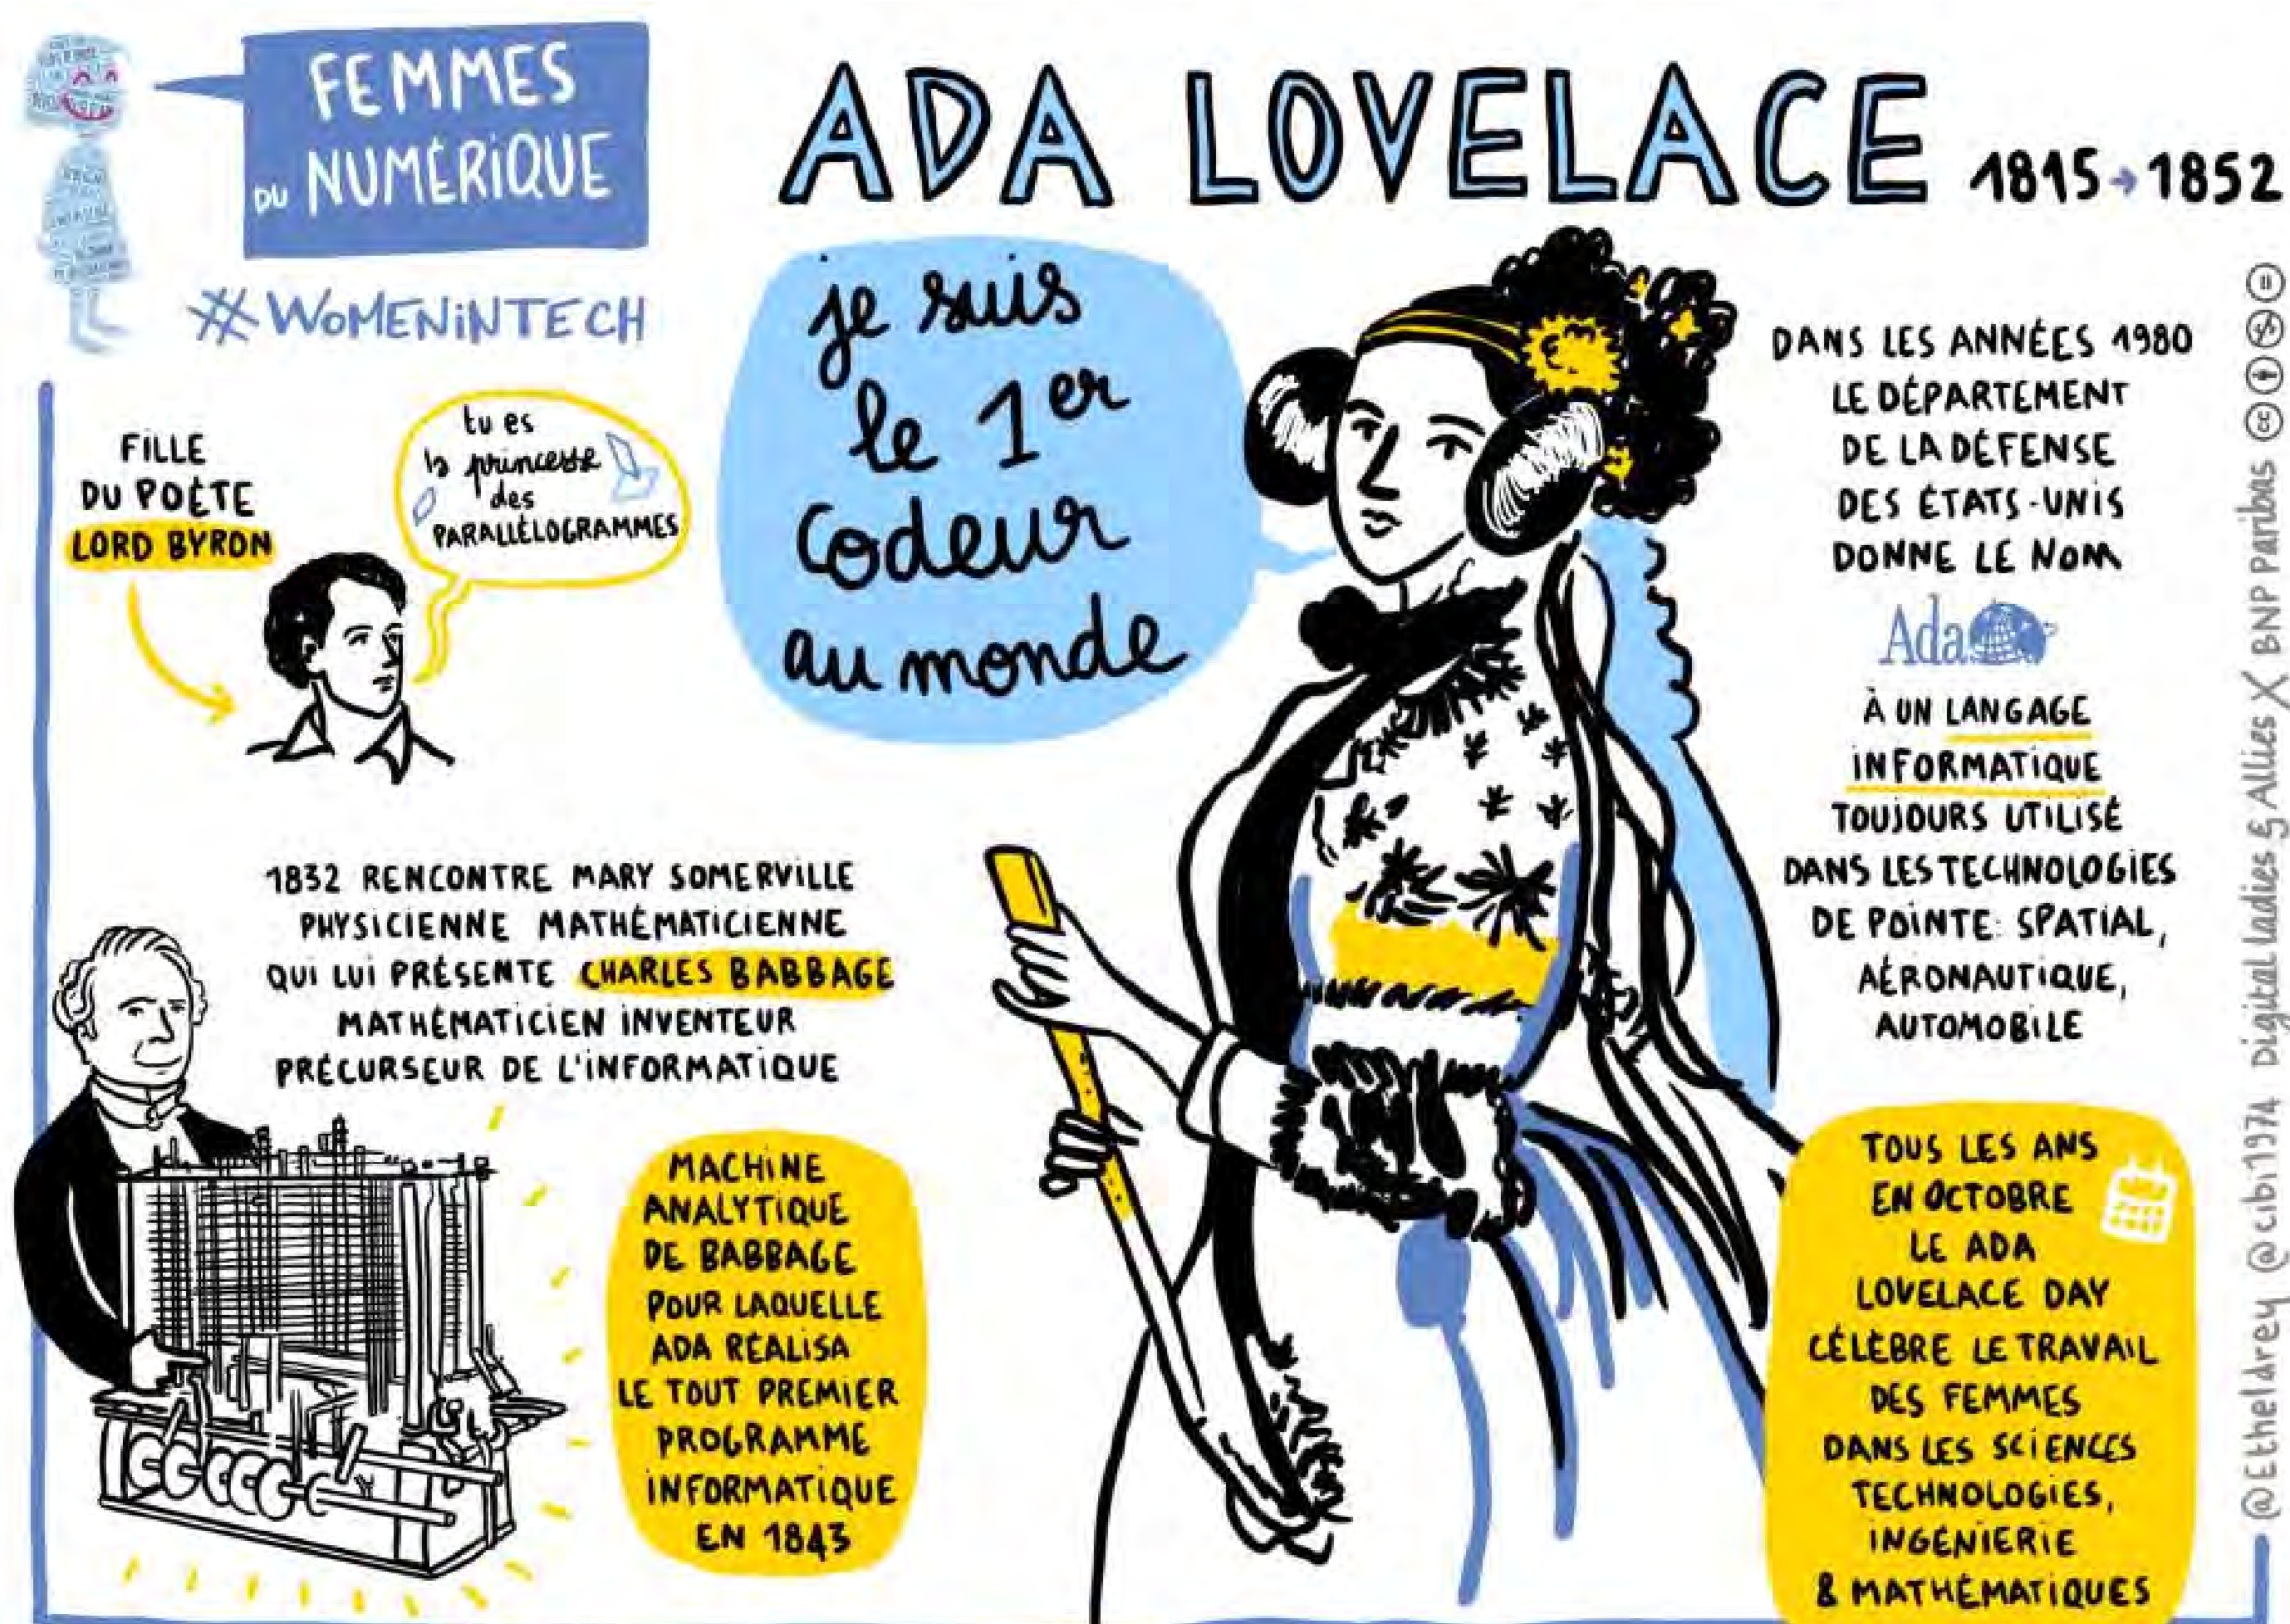 FEMMES
DU NUMÉRIQUE
#WOMENINTECH
ADA LOVELACE 1815→1852
je suis
le 1er
codeur
au monde
FILLE
DU POÈTE
LORD BYRON
tu es
la princesse
des
PARALLÉLOGRAMMES
1832 RENCONTRE MARY SOMERVILLE
PHYSICIENNE MATHÉMATICIENNE
QUI LUI PRÉSENTE CHARLES BABBAGE
MATHÉMATICIEN INVENTEUR
PRÉCURSEUR DE L'INFORMATIQUE
MACHINE
ANALYTIQUE
DE BABBAGE
POUR LAQUELLE
ADA RÉALISA
LE TOUT PREMIER
PROGRAMME
INFORMATIQUE
EN 1843
DANS LES ANNÉES 1980
LE DÉPARTEMENT
DE LA DÉFENSE
DES ÉTATS-UNIS
DONNE LE NOM
Ada
À UN LANGAGE
INFORMATIQUE
TOUJOURS UTILISÉ
DANS LES TECHNOLOGIES
DE POINTE: SPATIAL,
AÉRONAUTIQUE,
AUTOMOBILE
TOUS LES ANS
EN OCTOBRE
LE ADA
LOVELACE DAY
CÉLÈBRE LE TRAVAIL
DES FEMMES
DANS LES SCIENCES
TECHNOLOGIES,
INGÉNIERIE
& MATHÉMATIQUES
@Etheldrey @cibi1974 Digital ladies & Allies X BNP Paribas cc